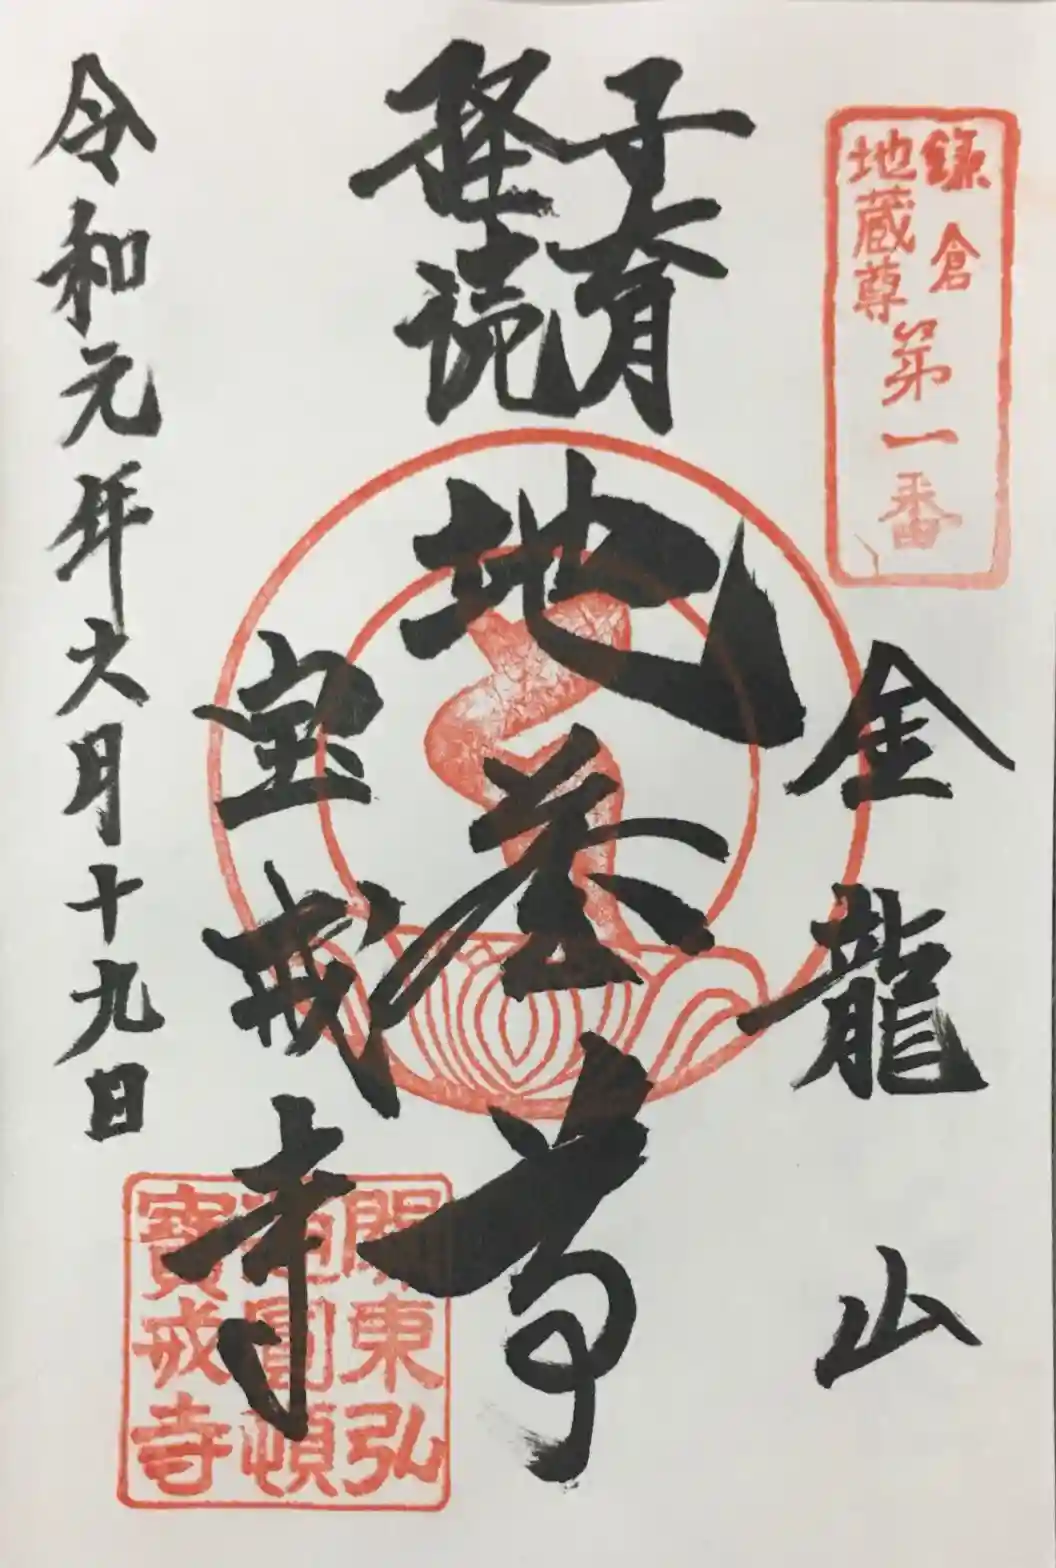 鎌倉
地蔵尊
第一番
金龍山
子育
経読
地蔵尊
宝戒寺
令和元年六月十九日
東弘
圓頓
寶戒寺